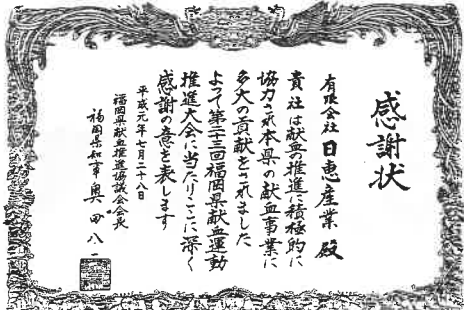 感謝状
有限会社 日恵産業 殿
貴社は献血の推進に積極的に
協力され本県の献血事業に
多大の貢献をされました
よって第二十三回福岡県献血運動
推進大会に当たりここに深く
感謝の意を表します
平成元年七月二十八日
福岡県献血推進協議会会長
福岡県知事 奥田八二